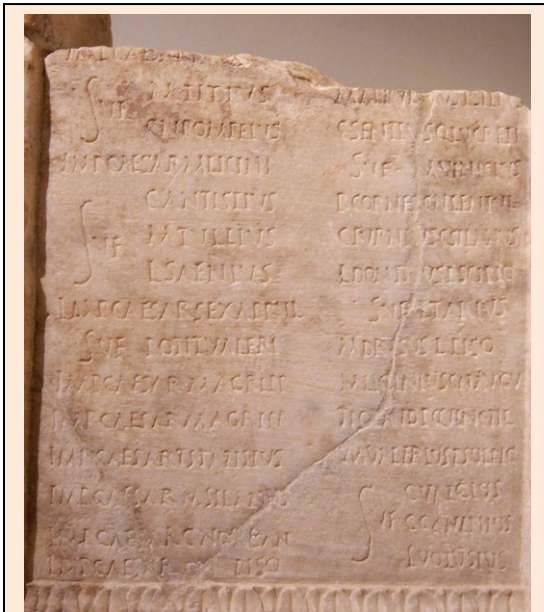 IMP CAESAR
SVF M TITIVS
CN POMPEIVS
IMP CAESAR M LICINI
SVF C ANTISTIVS
M TVLLIVS
L SAENIVS
IMP CAESAR SEX APPVL
SVF POTIT VALERI
IMP CAESAR M AGRIPP
IMP CAESAR M AGRIPP
IMP CAESAR T STATILIVS
IMP CAESAR M SILANVS
IMP CAESAR C NORBAN
IMP CAESAR CN PISO
P SILIVS
C SENTIVS Q LVCRETI
SVF M VINICIVS
P CORNE CN LENTVL
C FVRNIVS C SILANVS
L DOMITIVS P SCIPIO
SVF L TARIVS
M DRVSVS L PISO
M LICINIVS CN AVGV
TI CLAVDI P QVINCTIL
M VALERIVS P SVLPIC
SVF C VALGIVS
C CANINIVS
L VOLVSIVS